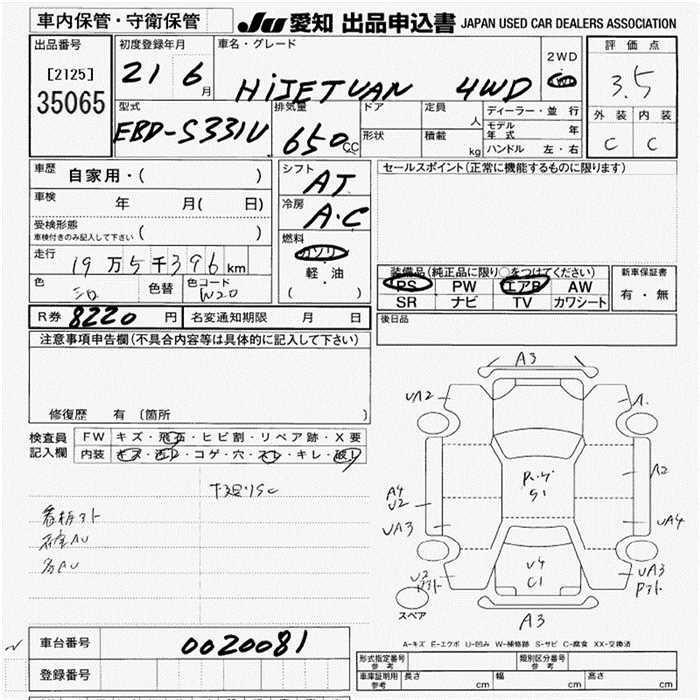 車内保管・守衛保管 JU 愛知 出品申込書 JAPAN USED CAR DEALERS ASSOCIATION
出品番号 初度登録年月 車名・グレード 2WD 評価点
[2125] 21 6月 HIJETVAN 4WD 4WD 3.5
35065
型式 排気量 ドア 定員 人 ディーラー・並行 外装 内装
EBD-S331V 650cc 形状 積載 kg モデル年式 年 C C
ハンドル 左・右
車歴 自家用・( ) シフト AT セールスポイント(正常に機能するものに限ります)
車検 年 月( 日) 冷房 A.C
受検形態
車検付きのみ記入して下さい ( )
燃料 ガソリン
走行 19万5千396km 軽・油 装備品(純正品に限り○をつけてください) 新車保証書
色 色替 色コード W20 ( ) PS PW エアB AW 有・無
SR ナビ TV カワシート
R券 8220円 名変通知期限 月 日 後日品
注意事項申告欄(不具合内容等は具体的に記入して下さい)
A3
UA2 A
修復歴 有 (箇所 )
検査員 FW キズ・飛石・ヒビ割・リペア跡・X要
記入欄 内装 キズ・汚レ・コゲ・穴・スレ・キレ・破レ
A2
S1
A4
U2
UA3 UA4
U4
C1
U2 UA3
スペア
A3
車台番号 0020081 A-キズ E-エクボ U-凹み W-補修跡 S-サビ C-腐食 XX-交換済
登録番号 形式指定番号 参考 類別区分番号 参考
車庫証明用 参考 長さ cm 幅 cm 高さ cm